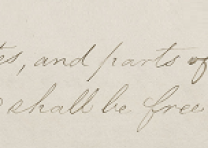 es, and parts of
shall be free